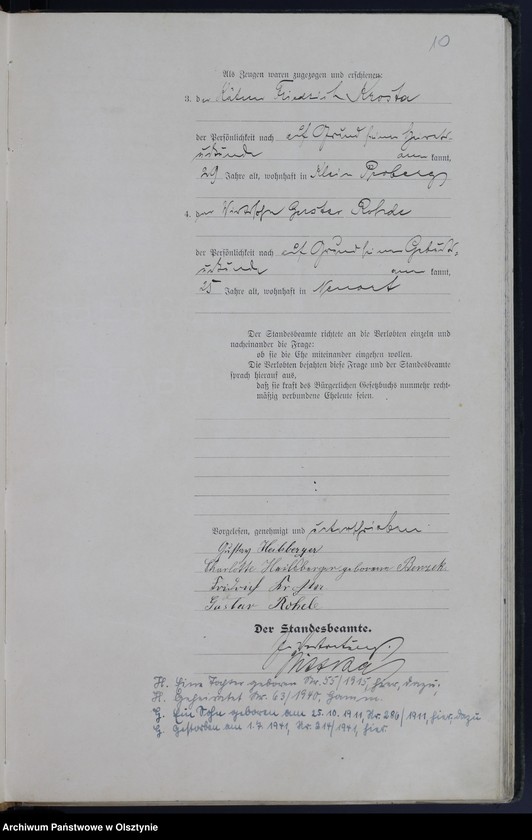 10
Als Zeugen waren zugezogen und erschienen:
3. der Kätner Friedrich Krosta
der Persönlichkeit nach auf Grund seiner Heirats-
urkunde anerkannt,
29 Jahre alt, wohnhaft in Klein Proberg
4. der Wirtssohn Gustav Rohde
der Persönlichkeit nach auf Grund seiner Geburts-
urkunde anerkannt,
25 Jahre alt, wohnhaft in Neuort
Der Standesbeamte richtete an die Verlobten einzeln und
nacheinander die Frage:
ob sie die Ehe miteinander eingehen wollen.
Die Verlobten bejahten diese Frage und der Standesbeamte
sprach hierauf aus,
daß sie kraft des Bürgerlichen Gesetzbuchs nunmehr recht-
mäßig verbundene Eheleute seien.
Vorgelesen, genehmigt und unterschrieben
Gustav Heilsberger
Charlotte Heilsberger geborene
Friedrich Krosta
Gustav Rohde
Der Standesbeamte.
In Vertretung.
H. Eine Tochter geboren Nr. 55/1915, hier, dazu,
H. Geheiratet Nr. 63/1940,
G. Ein Sohn geboren am 25.10.1911, Nr. 286/1911, hier, dazu
G. Gestorben am 1.7.1941, Nr. 214/1941, hier
Archiwum Państwowe w Olsztynie